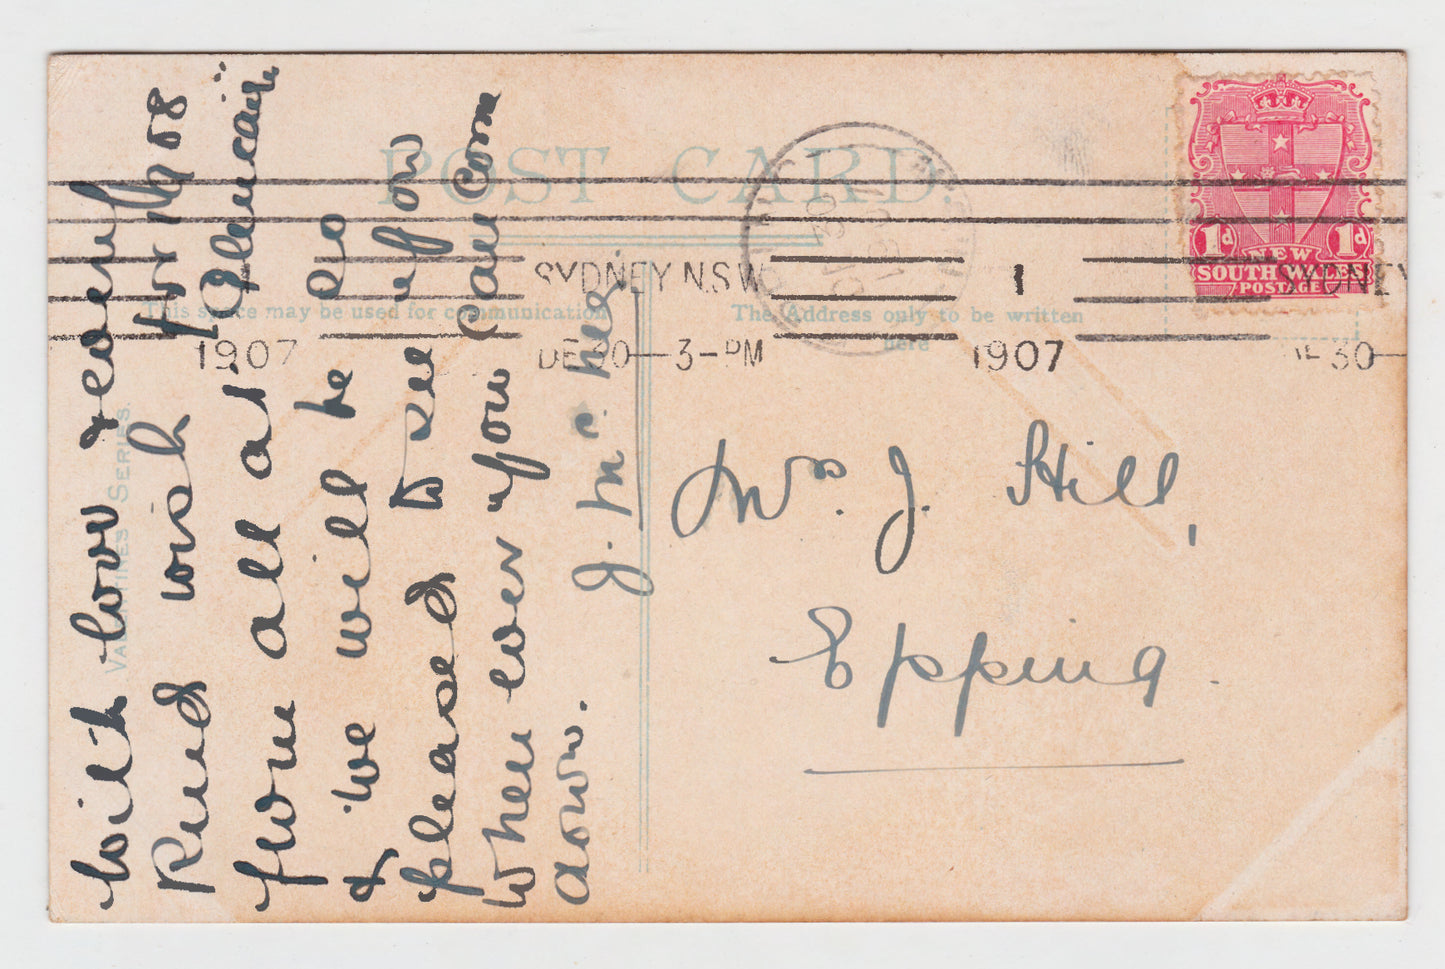 POST CARD.
This space may be used for communication
The Address only to be written
here
VALENTINES SERIES.
SYDNEY N.S.W
1
SYDNEY
1907
DE 30—3-PM
1907
DE 30—
1d
1d
NEW
SOUTH WALES
POSTAGE
with love & every
kind wish for 1908
from all at Glencairn
& we will be so
pleased to see you
when ever you can come
down.
J. Mc
Mrs. J. Hill,
Epping.